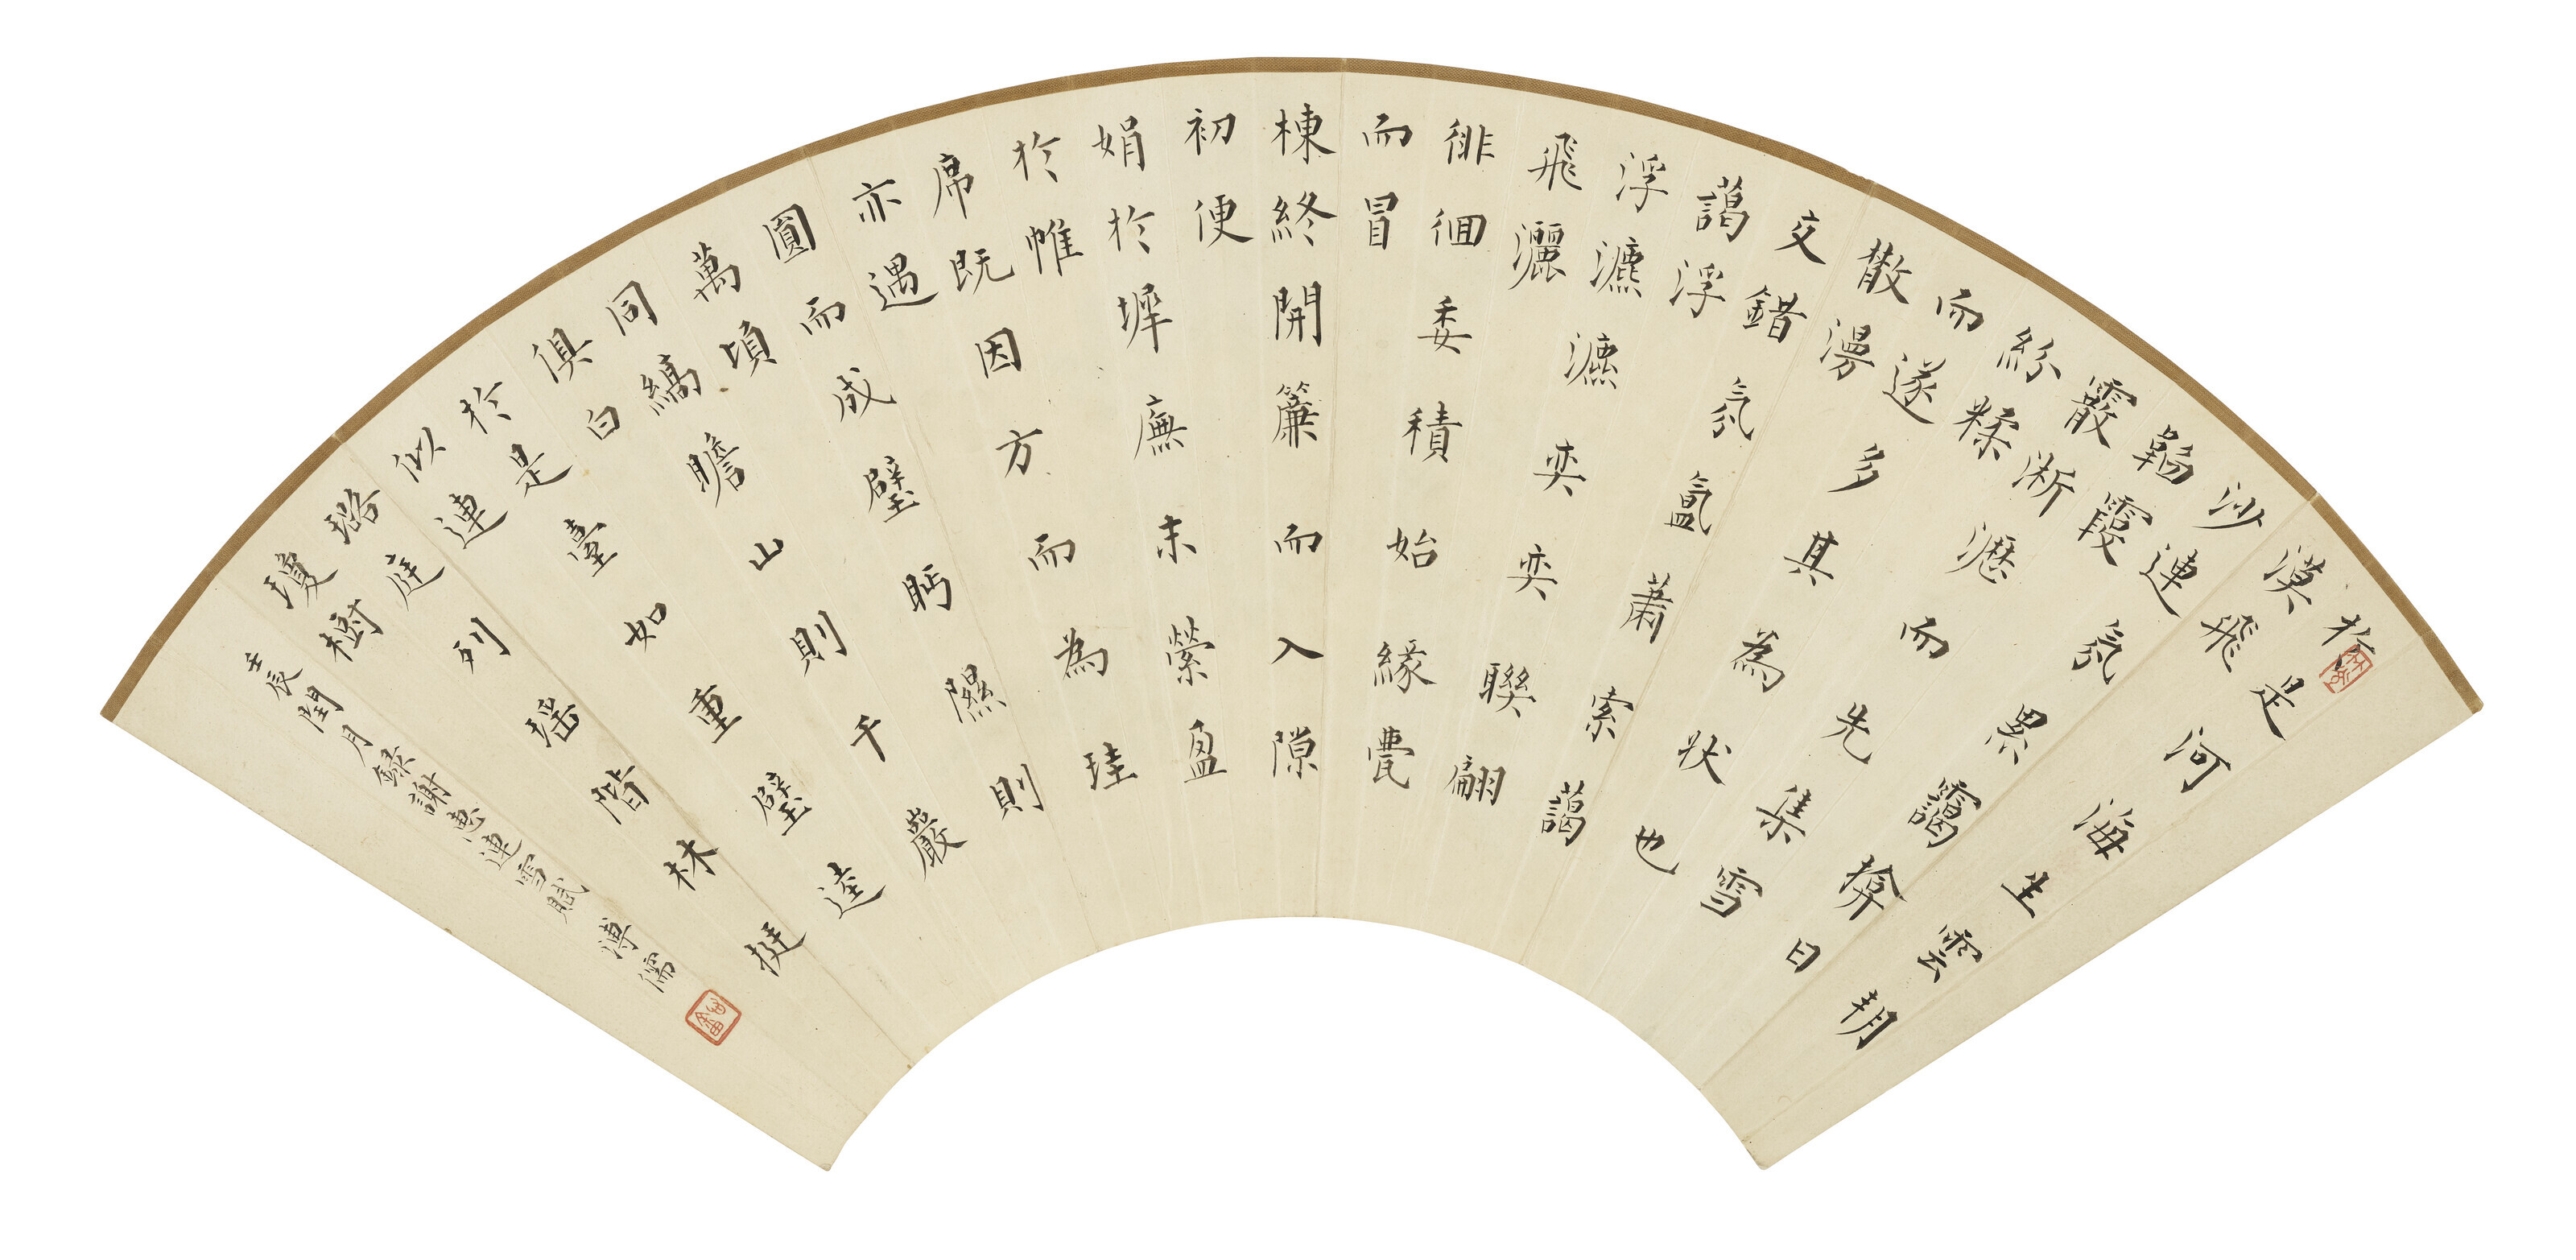 於是河海生雲朔
漠飛
沙連氛累靄揜日
韜霞
霰淅瀝而先集雪
紛糅
而遂多其為狀也
散漫
交錯氛氳蕭索藹
藹浮
浮瀌瀌奕奕聯翩
飛灑
徘徊委積始緣甍
而冒
棟終開簾而入隙
初便
娟於墀廡末縈盈
於帷
席既因方而為珪
亦遇
圓而成璧眄隰則
萬頃
同縞瞻山則千巖
俱白
於是臺如重璧逵
似連
璐庭列瑶階林挺
瓊樹
壬辰閏月録謝惠連雪賦 溥儒